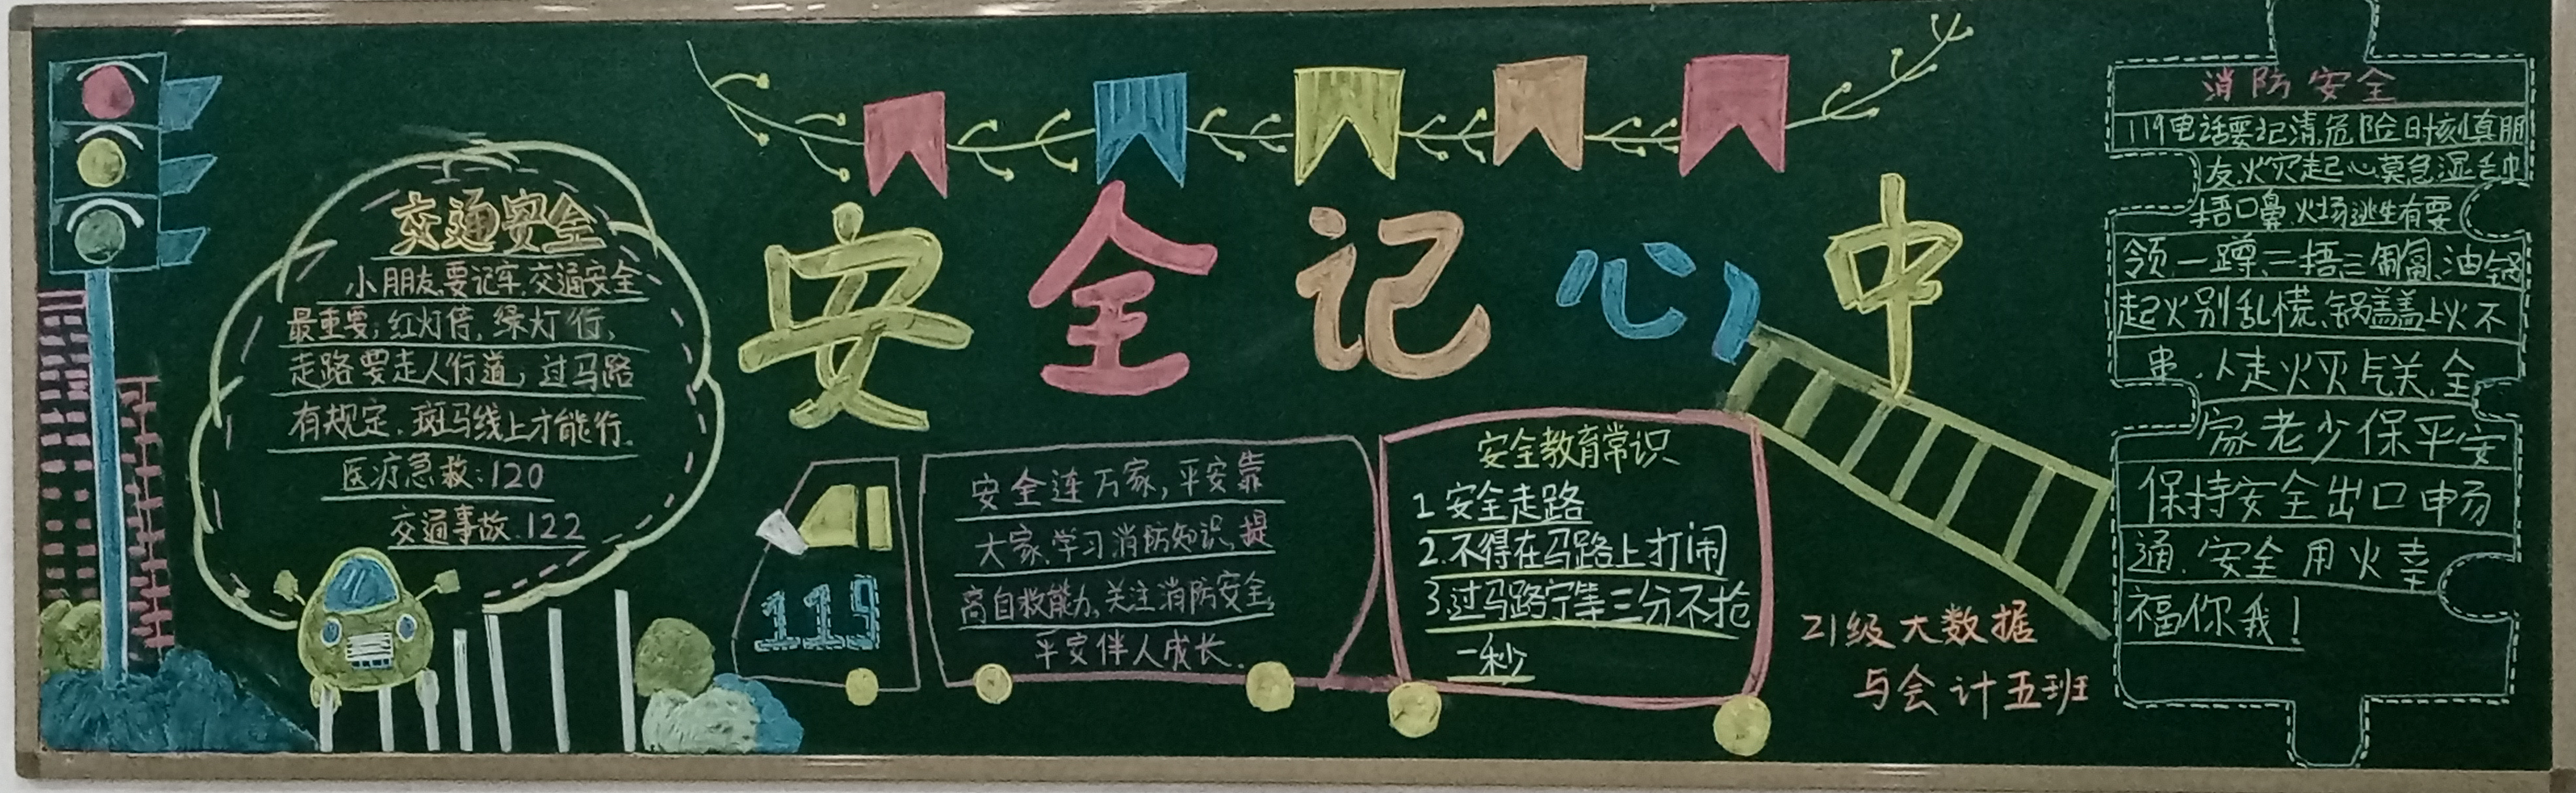 安全记心中
交通安全
小朋友,要记牢,交通安全
最重要,红灯停,绿灯行,
走路要走人行道,过马路
有规定,斑马线上才能行.
医疗急救:120
交通事故.122
119
安全连万家,平安靠
大家,学习消防知识,提
高自救能力,关注消防安全,
平安伴人成长.
安全教育常识
1安全走路
2.不得在马路上打闹
3.过马路宁等三分不抢
一秒
21级大数据
与会计五班
消防安全
119电话要记清,危险时刻真朋
友,火灾起心莫急湿毛巾
捂口鼻,火场逃生有要
领,一蹲二捂三匍匐,油锅
起火别乱慌,锅盖盖上火不
串,人走火灭气关,全
家老少保平安
保持安全出口畅
通.安全用火幸
福你我!